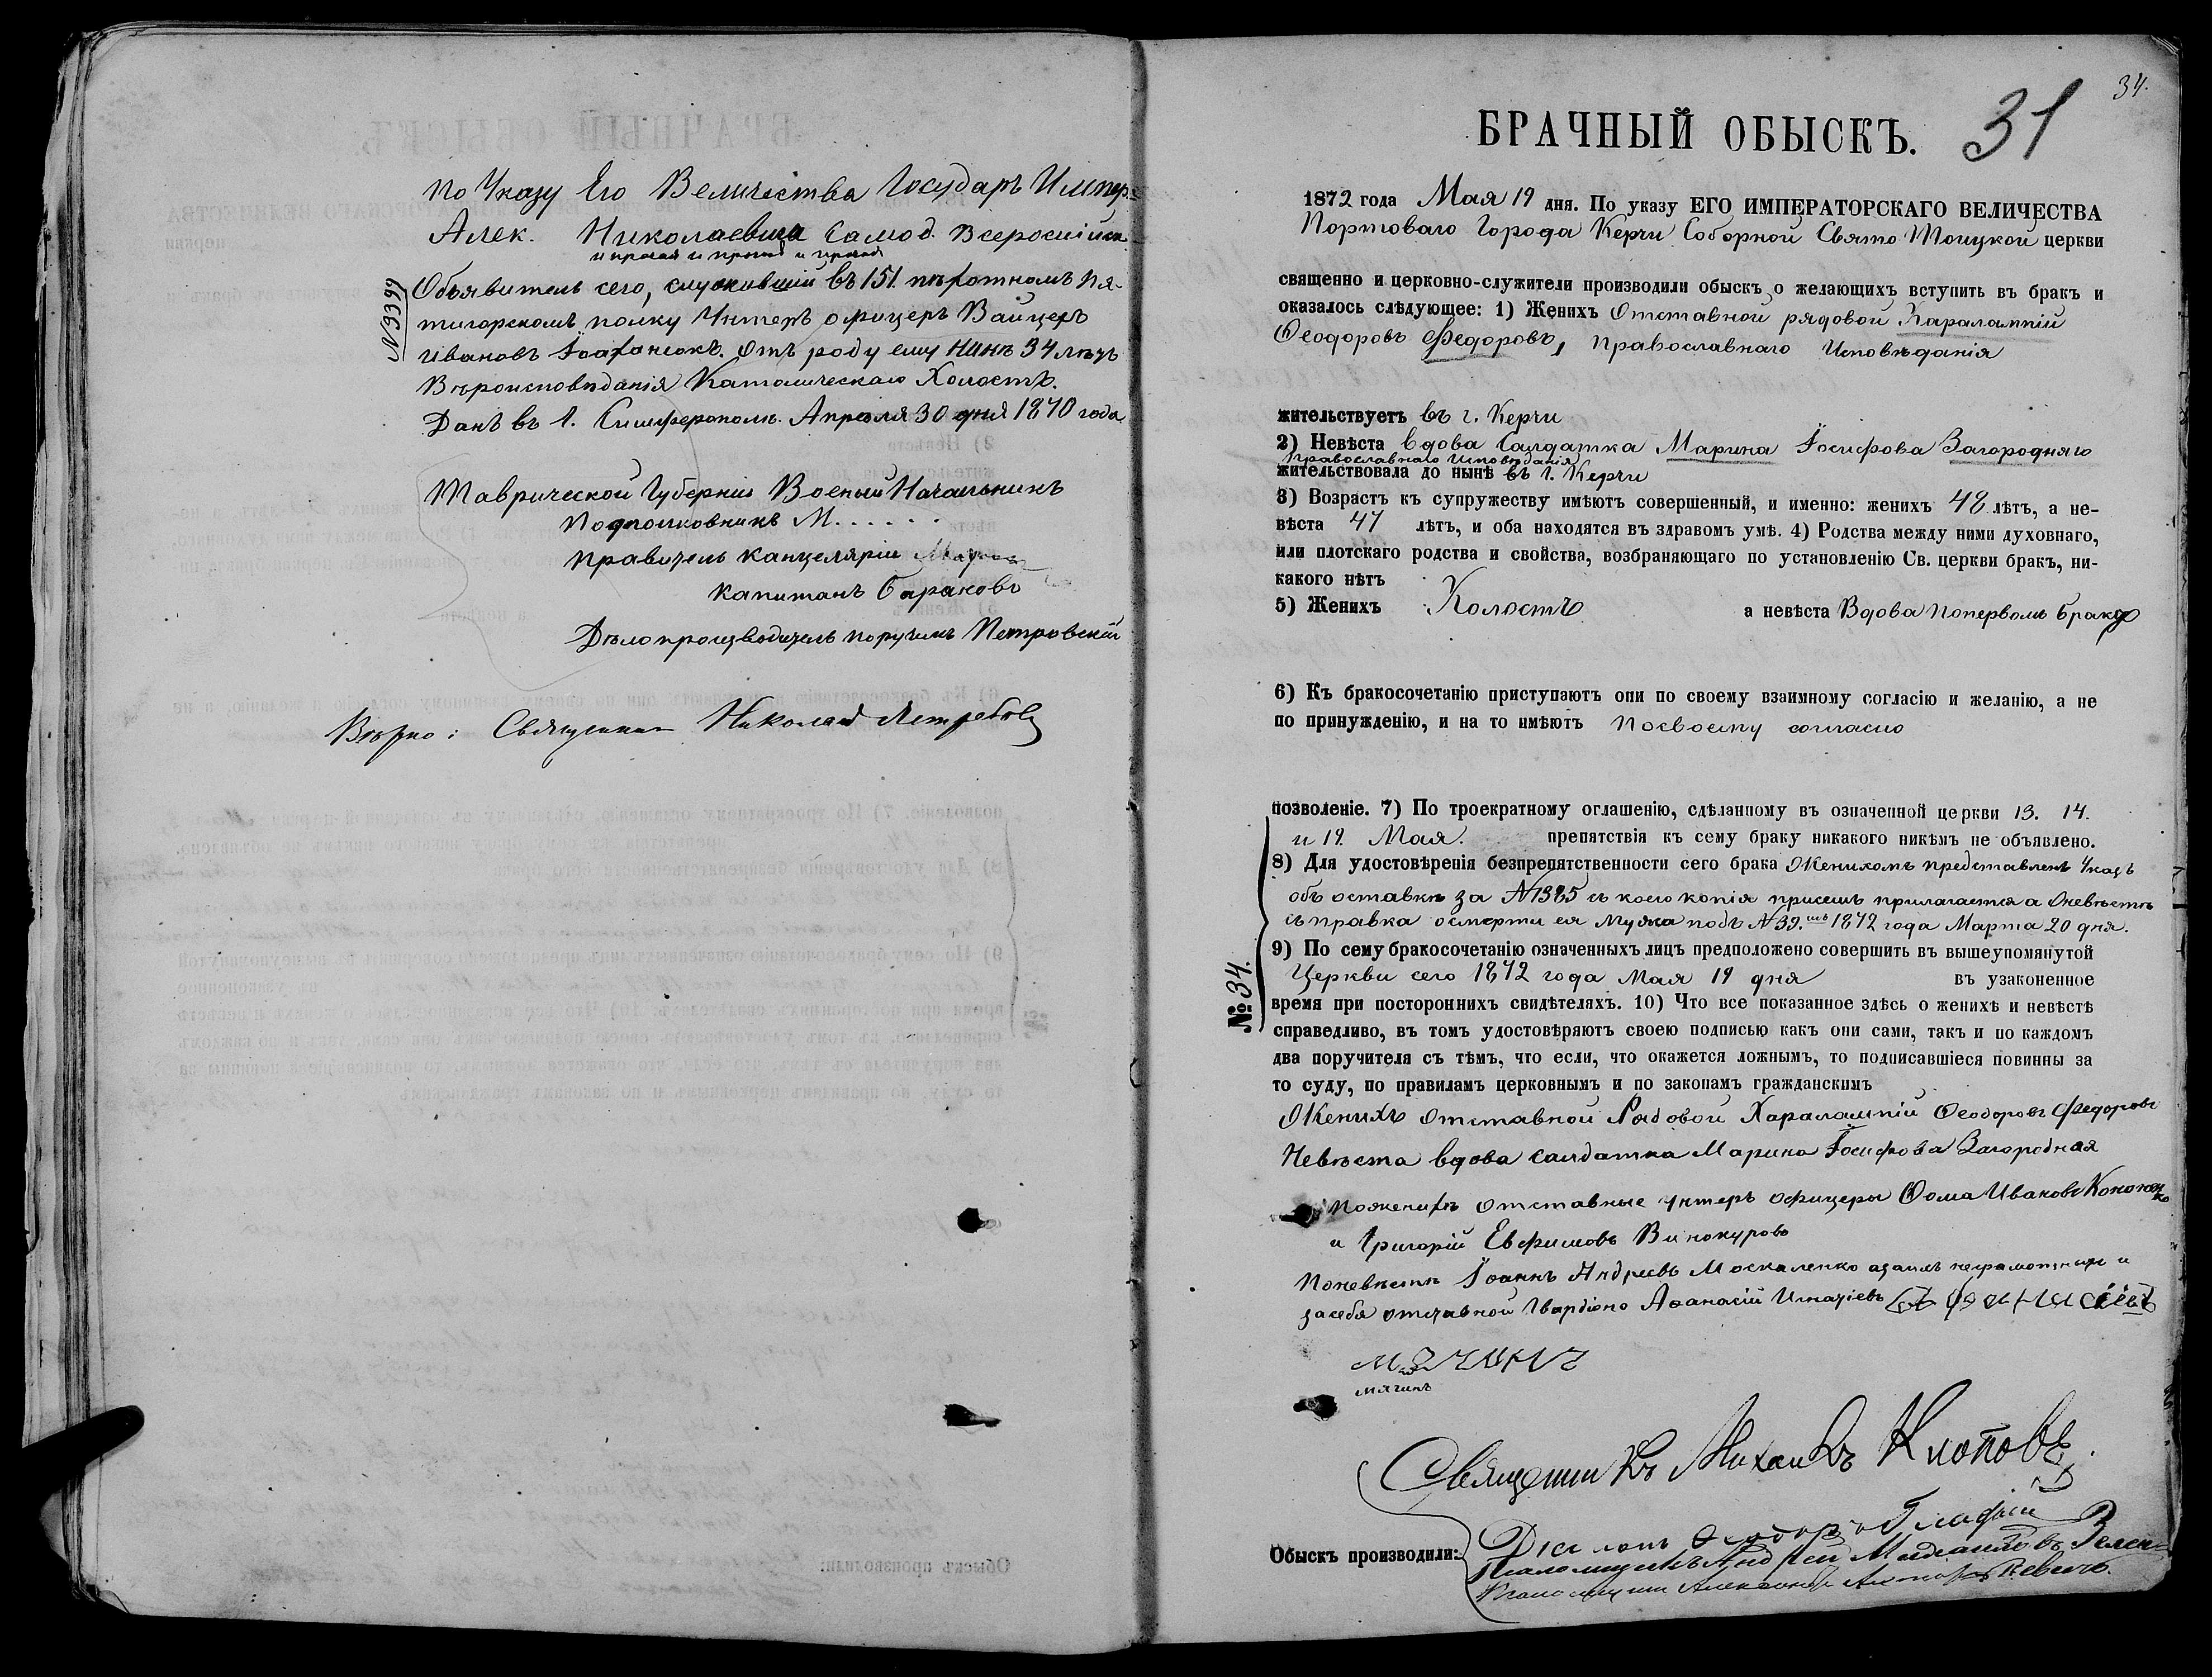 по Указу Его Величества Государь Импер.
Алек. Николаевича Самод. Всеросийск.
и прочая и прочая и прочая
№ 3399
Объявитель сего, служившій въ 151 пѣхотномъ Пя-
тигорскомъ полку Унтеръ офицеръ Вайцехъ
Ивановъ отъ роду ему нынѣ 34 лѣтъ
Вѣроисповѣданія Католическаго Холостъ.
Данъ въ г. Симферополѣ. Апрѣля 30 дня 1870 года
Таврической Губерніи Военый Начальникъ
Подполковникъ М......
правитель канцеляріи
капитанъ Бараковъ
Дѣлопроизводитель поручикъ Петровскій
Вѣрно: Священникъ Николай Ястребовъ
34.
БРАЧНЫЙ ОБЫСКЪ. 31
1872 года Мая 19 дня. По указу ЕГО ИМПЕРАТОРСКАГО ВЕЛИЧЕСТВА
Портоваго Города Керчи Соборной Свято Тоицкой церкви
священно и церковно-служители производили обыскъ о желающихъ вступить въ бракъ и
оказалось слѣдующее: 1) Женихъ Отставной рядовой Харалампій
Ѳеодоровъ Федоровъ, православнаго Исповѣданія
жительствуетъ въ г. Керчи
2) Невѣста вдова Салдатка Марина Іосифова Загородняго
православнаго Исповѣданія
жительствовала до нынѣ въ г. Керчи
3) Возрастъ къ супружеству имѣютъ совершенный, и именно: женихъ 48 лѣтъ, а не-
вѣста 47 лѣтъ, и оба находятся въ здравомъ умѣ. 4) Родства между ними духовнаго,
или плотскаго родства и свойства, возбраняющаго по установленію Св. церкви бракъ, ни-
какого нѣтъ
5) Женихъ Холостъ а невѣста Вдова попервомъ бракѣ
6) Къ бракосочетанію приступаютъ они по своему взаимному согласію и желанію, а не
по принужденію, и на то имѣютъ посвоему согласію
позволеніе. 7) По троекратному оглашенію, сдѣланному въ означенной церкви 13. 14.
и 19. Мая. препятствія къ сему браку никакого никѣмъ не объявлено.
8) Для удостовѣренія безпрепятственности сего брака Женихомъ представленъ Указъ
объ оставкѣ за №1385 съ коего копія присемъ прилагается а Оневѣстѣ
съправка осмерти ея мужа подъ №39.мъ 1872 года Марта 20 дня.
9) По сему бракосочетанію означенныхъ лицъ предположено совершить въ вышеупомянутой
Церкви сего 1872 года Мая 19 дня въ узаконенное
№ 34.
время при постороннихъ свидѣтеляхъ. 10) Что все показанное здѣсь о женихѣ и невѣстѣ
справедливо, въ томъ удостовѣряютъ своею подписью какъ они сами, такъ и по каждомъ
два поручителя съ тѣмъ, что если, что окажется ложнымъ, то подписавшіеся повинны за
то суду, по правиламъ церковнымъ и по законамъ гражданскимъ
Женихъ отставной Рядовой Харалампій Ѳеодоровъ Федоровъ
Невѣста вдова салдатка Марина Іосифова Загородная
поженихѣ отставные унтеръ офицеры Ѳома Ивановъ Кононенко
и Григорій Евфимовъ Винокуровъ
Поневѣстѣ Іоаннъ Андреевъ Москаленко азаихъ неграмотныхъ и
засебя отставной Афанасій Игнатіевъ
мячинъ
Священникъ Михаилъ Клоповъ
Обыскъ производили: Діаконъ Ѳеодоръ
Псаломщикъ Андрей Михайловъ
Псаломщикъ Александръ